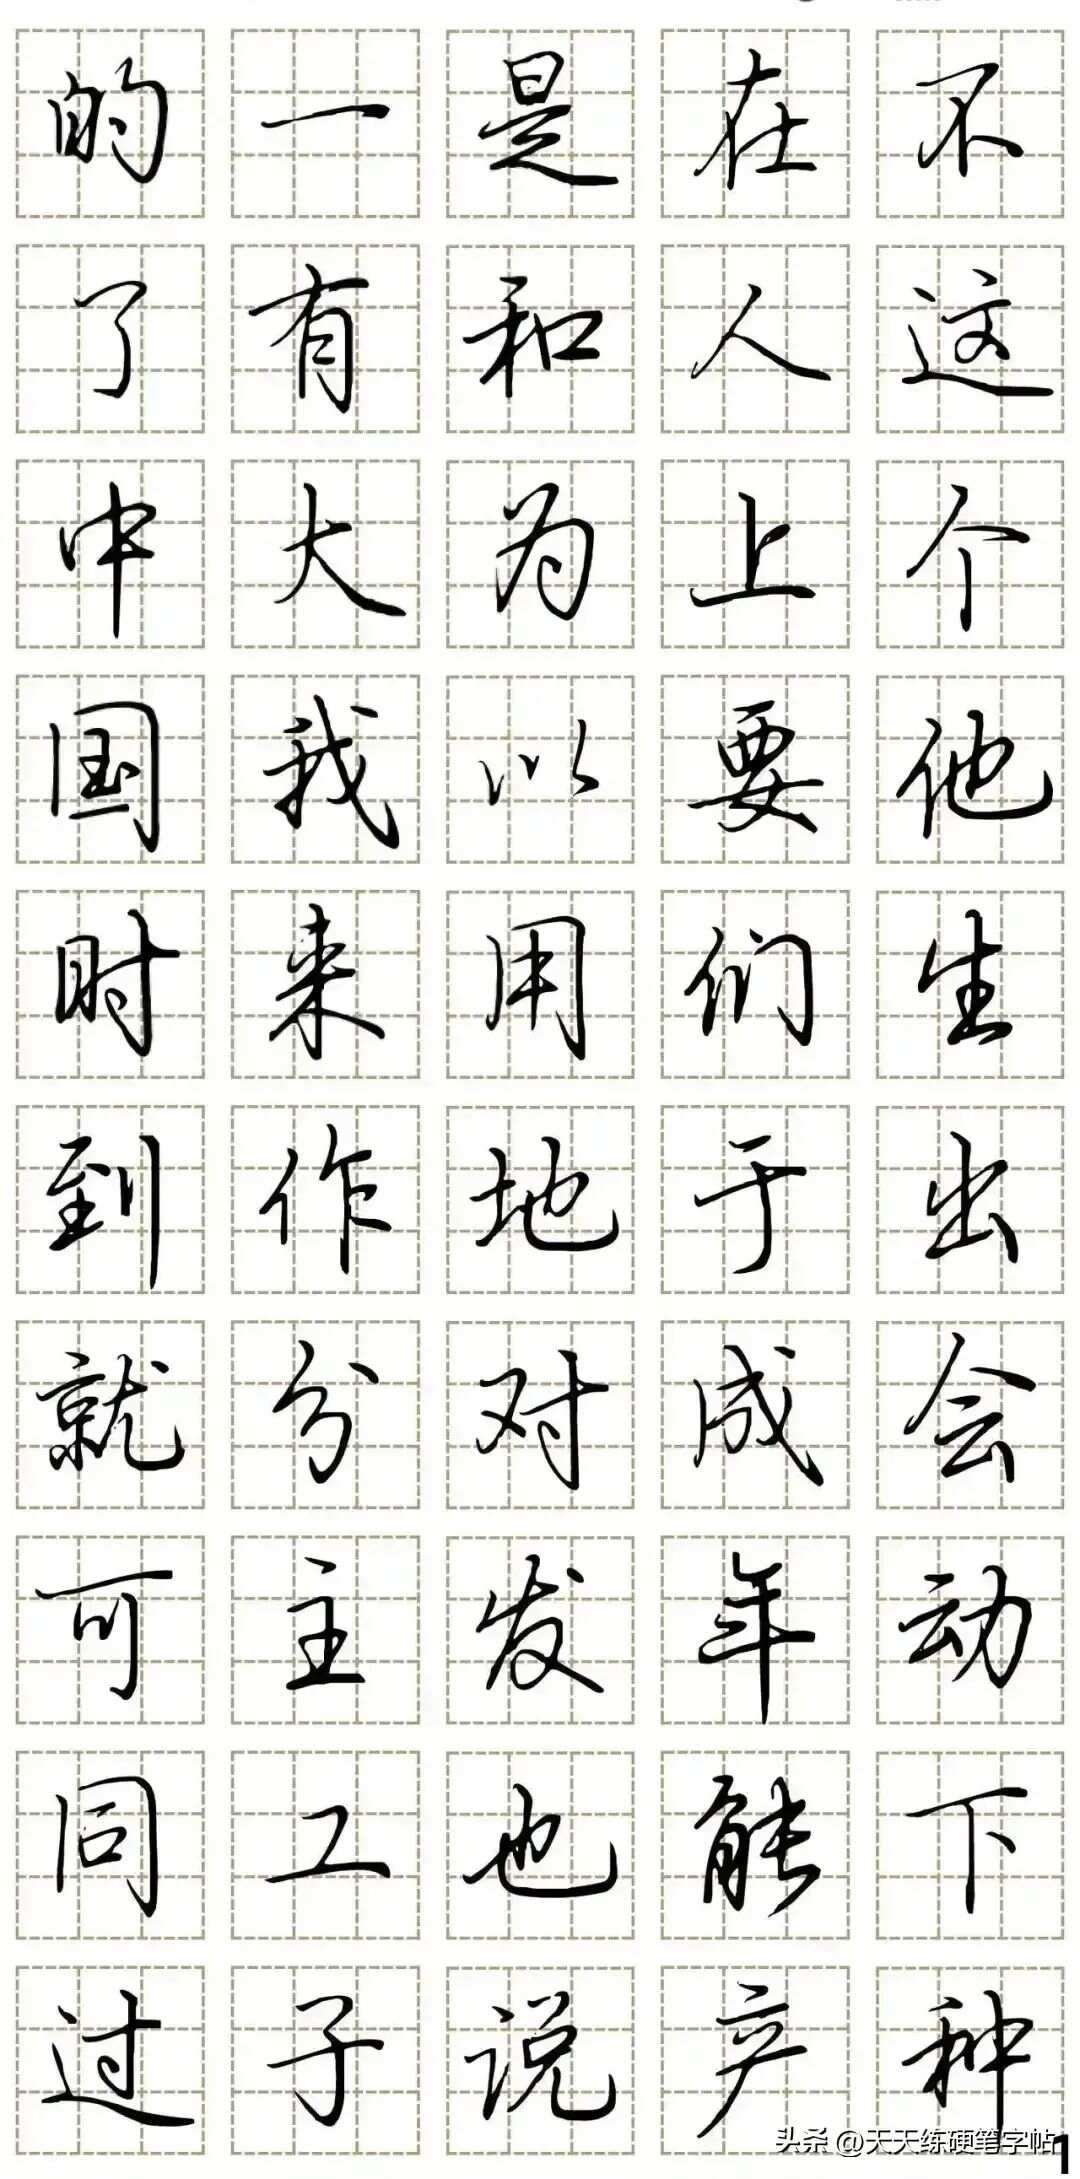 的一是在不
了有和人这
中大为上个
国我以要他
时来用们生
到作地于出
就分对成会
可主发年动
同工也能下
过子说产种
头条 @天天练硬笔字帖
1